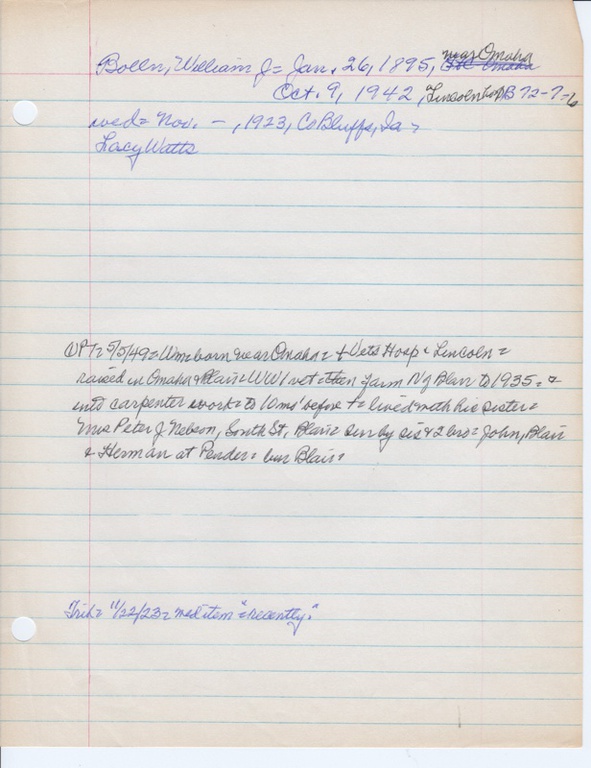 Bolln, William J= Jan. 26, 1895, near Omaha
Oct. 9, 1942, Lincoln Hosp B 72-7-6
wed= Nov. — , 1923, Co Bluffs, Ia =
Lacy Watts
5/5/49= Wm born near Omaha= + Vets Hosp Lincoln=
raised in Omaha & Blair= WW1 vet= then farm N of Blair to 1935= &
into carpenter work= to 10 ms' before += lived with his sister=
Mrs Peter J Nelson, South St, Blair= sur by sis & 2 bro= John, Blair
& Herman at Pender= bur Blair=
Trib= 11/22/23= wed item "=recently."